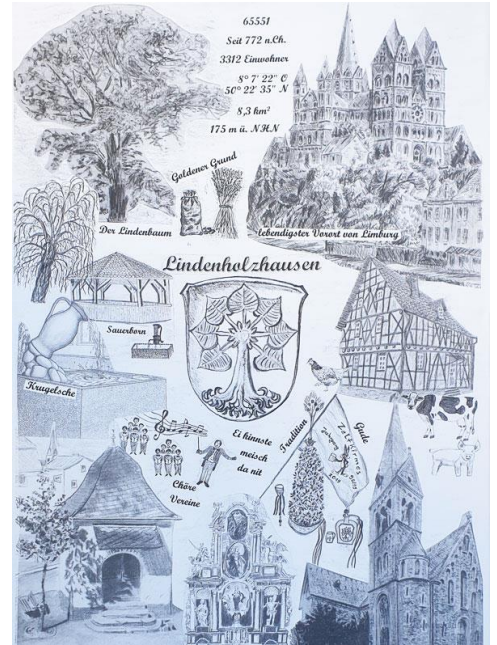 65551
Seit 772 n.Ch.
3312 Einwohner
8° 7' 22" O
50° 22' 35" N
8,3 km²
175 m ü. NHN
Goldener Grund
Der Lindenbaum
lebendigster Vorort von Limburg
Lindenholzhausen
Sauerborn
Krugelsche
Ei hinnste
meisch
da nit
Chöre
Vereine
Tradition
Gude